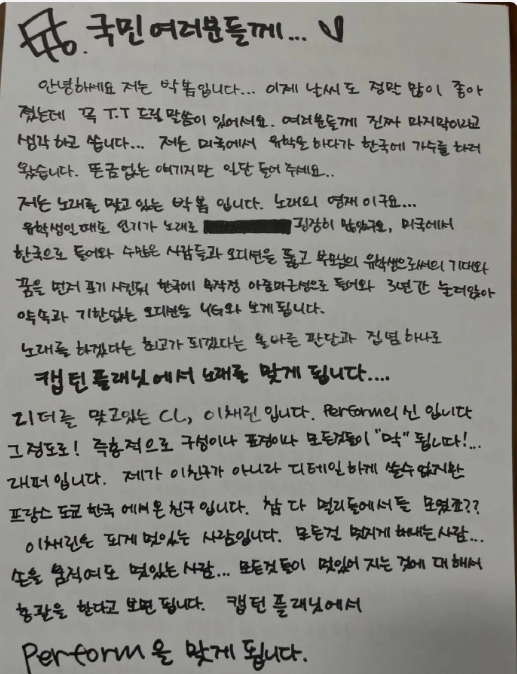 To. 국민 여러분들께...
안녕하세요 저는 박봄입니다... 이제 날씨도 정말 많이 좋아
졌는데 꼭 T.T 드릴 말씀이 있어서요. 여러분들께 진짜 마지막이라고
생각하고 씁니다... 저는 미국에서 유학을 하다가 한국에 가수를 하러
왔습니다. 뜬금없는 얘기지만 일단 들어 주세요..
저는 노래를 맞고 있는 박봄 입니다. 노래의 영재 이구요...
유학생인 때도 인기가 노래로 굉장히 많았구요, 미국에서
한국으로 들어와 수많은 사람들과 오디션을 뚫고 부모님의 유학생으로써의 기대와
꿈을 먼저 포기 시킨뒤 한국에 무작정 아줌마근성으로 들어와 3년간 눌러앉아
약속과 기한없는 오디션을 YG와 보게 됩니다.
노래를 하겠다는 최고가 되겠다는 올바른 판단과 집념 하나로
캡틴 플래닛에서 노래를 맞게 됩니다....
리더를 맞고있는 CL, 이채린 입니다. Perform의 신 입니다
그 정도로! 즉흥적으로 구성이나 표정이나 모든것들이 "막" 됩니다!...
래퍼 입니다. 제가 이친구가 아니라 디테일 하게 쓸수 없지만
프랑스 도쿄 한국 에서 온 친구 입니다. 참 다 멀리들에서들 모였죠??
이채린은 되게 멋있는 사람입니다. 모든걸 멋지게 해내는 사람...
손을 움직여도 멋있는 사람... 모든것들이 멋있어 지는 것에 대해서
총괄을 한다고 보면 됩니다. 캡틴 플래닛에서
Perform을 맞게 됩니다.